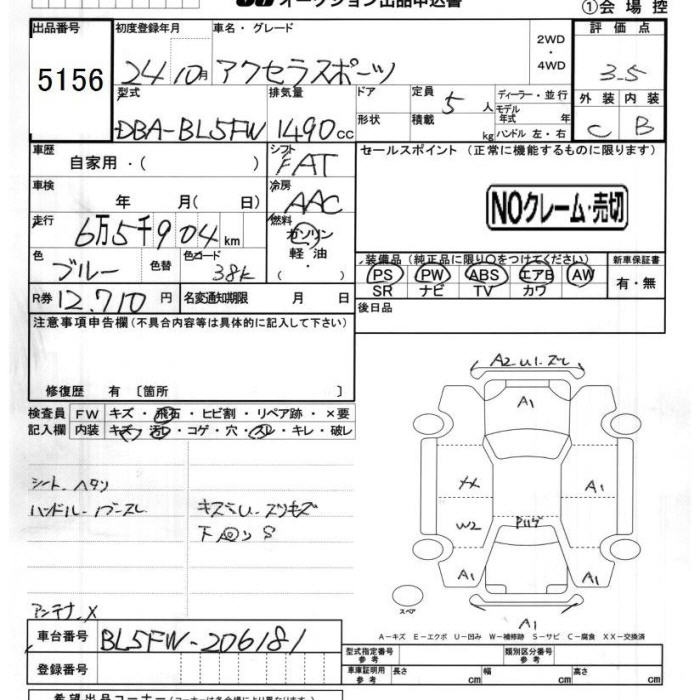 オークション出品申込書
①会場控
出品番号 初度登録年月 車名・グレード 2WD・4WD 評価点
5156 24 10月 アクセラスポーツ 3.5
型式 排気量 ドア 定員 5人 ディーラー・並行 外装 内装
DBA-BL5FW 1490cc 形状 積載 kg モデル年式 年 C B
ハンドル 左・右
車歴 自家用・( ) シフト FAT セールスポイント (正常に機能するものに限ります)
車検 年 月( 日) 冷房 AAC NOクレーム・売切
走行 6万5千904km 燃料 ガソリン
軽油
・( )
色 ブルー 色替 色カード 38K 装備品 (純正品に限り○をつけてください) 新車保証書
PS PW ABS エアB AW 有・無
SR ナビ TV カワ
R券 12,710円 名変通知期限 月 日 後日品
注意事項申告欄 (不具合内容等は具体的に記入して下さい)
修復歴 有 〔箇所 〕
検査員 FW キズ・飛石・ヒビ割・リペア跡・×要
記入欄 内装 キズ・汚レ・コゲ・穴・スレ・キレ・破レ
シート.ヘタリ
ハンドル.
アンテナ.X
A2
A1
A1
W2
A1
A1
A1
スペア
A1
A-キズ E-エクボ U-凹み W-補修跡 S-サビ C-腐食 XX-交換済
車台番号 BL5FW-206181 型式指定番号 参考 類別区分番号 参考
登録番号 車庫証明用 参考 長さ cm 幅 cm 高さ cm
希望出品コーナー